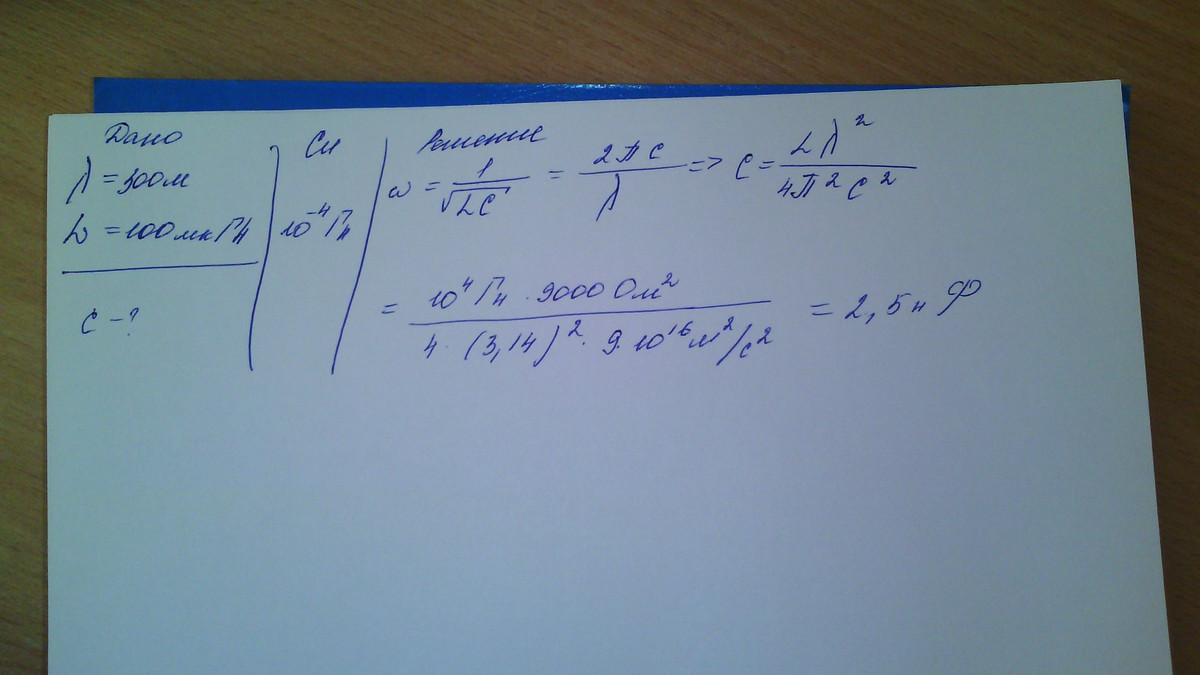 Дано
λ = 300м
L = 100мкГн
C - ?
Си
10⁻⁴ Гн
Решение
ω = 1/√LC = 2πc/λ => C = Lλ²/4π²c²
= 10⁴ Гн · 90000м²/4 · (3,14)² · 9·10¹⁶ м²/с² = 2,5нФ